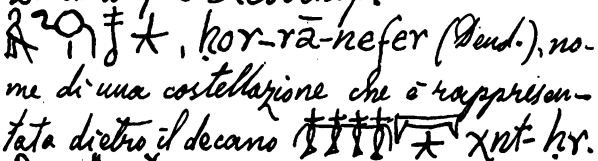 , ḥor-rā-nefer (Dend.), no-
me di una costellazione che è rappresen-
tata dietro il decano χnt-ḥr.